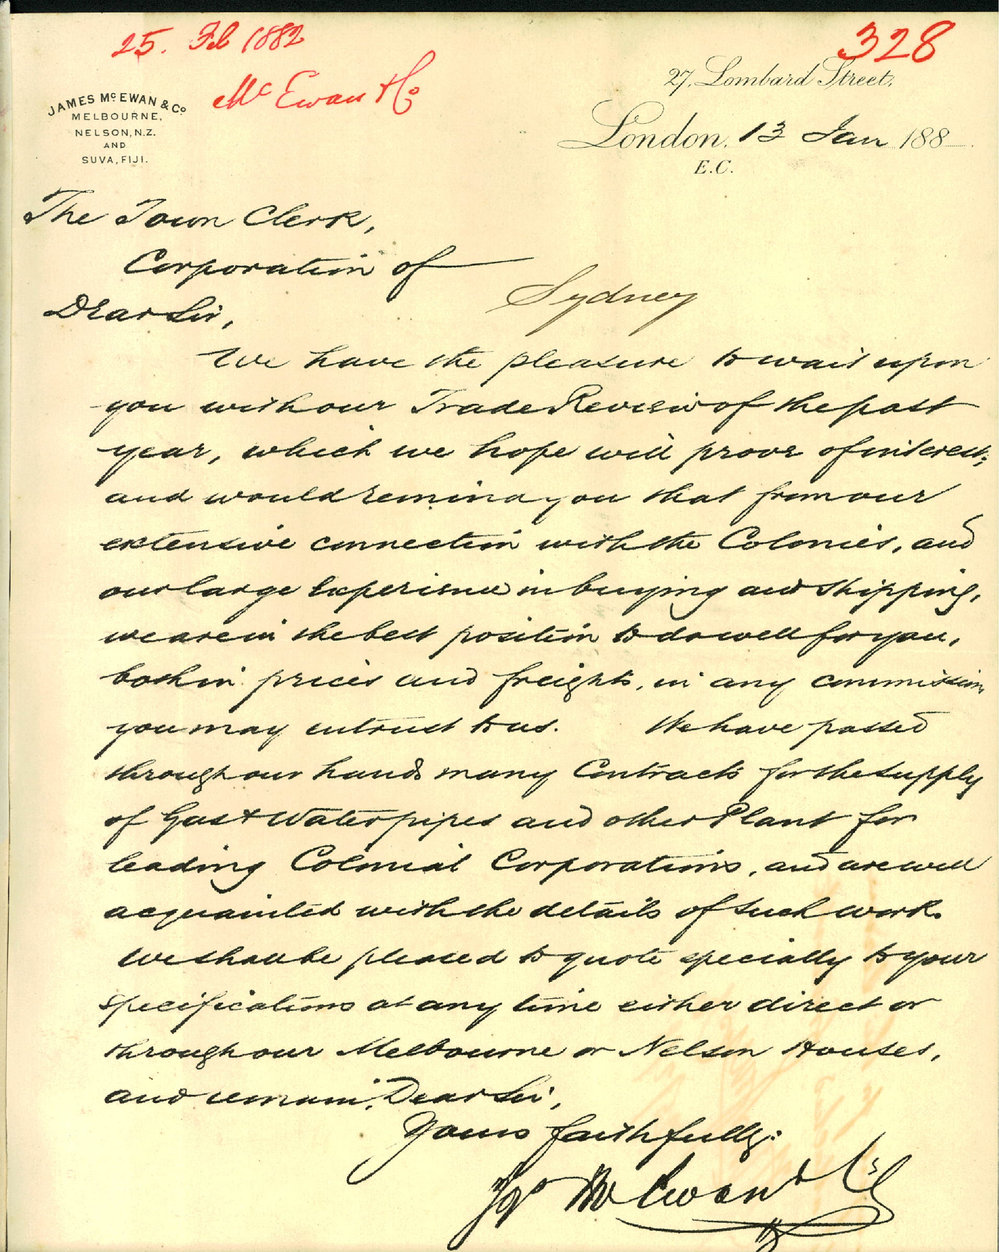 25. Feb 1882
328
McEwan & Co
JAMES McEWAN & Co
MELBOURNE,
NELSON, N.Z.
AND
SUVA, FIJI.
27, Lombard Street,
London, 13 Jan 188
E.C.
The Town Clerk,
Corporation of
Sydney
Dear Sir,
We have the pleasure to wait upon
you with our Trade Review of the past
year, which we hope will prove of interest;
and would remind you that from our
extensive connection with the Colonies, and
our large experience in buying and shipping,
we are in the best position to do well for you,
both in prices and freights, in any commission
you may intrust to us. We have passed
through our hands many Contracts for the supply
of Gas & Water pipes and other Plant for
leading Colonial Corporations, and are well
acquainted with the details of such work.
We shall be pleased to quote specially to your
specifications at any time either direct or
through our Melbourne or Nelson Houses,
and remain, Dear Sir,
Yours faithfully:
Jas McEwan & Co